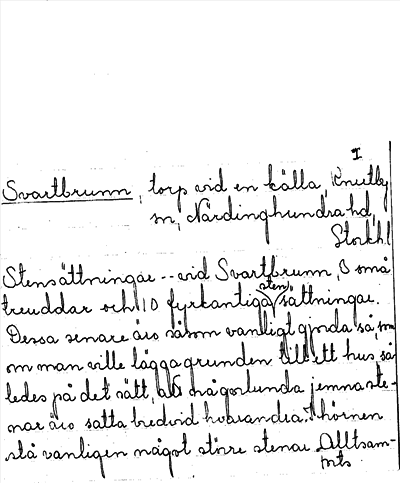 I
Svartbrunn, torp vid en källa, Knutby
sn, Närdinghundra hd,
Stockh.l
Stensättningar -- vid Svartbrunn, 3 små
treuddar och 10 fyrkantiga sten/sättningar.
Dessa senare äro såsom vanligt gjorda så, som
om man ville lägga grunden till ett hus, så
ledes på det sätt, att någorlunda jemna ste-
nar äro satta bredvid hvarandra. I hörnen
stå vanligen något större stenar. Alltsam-
mts